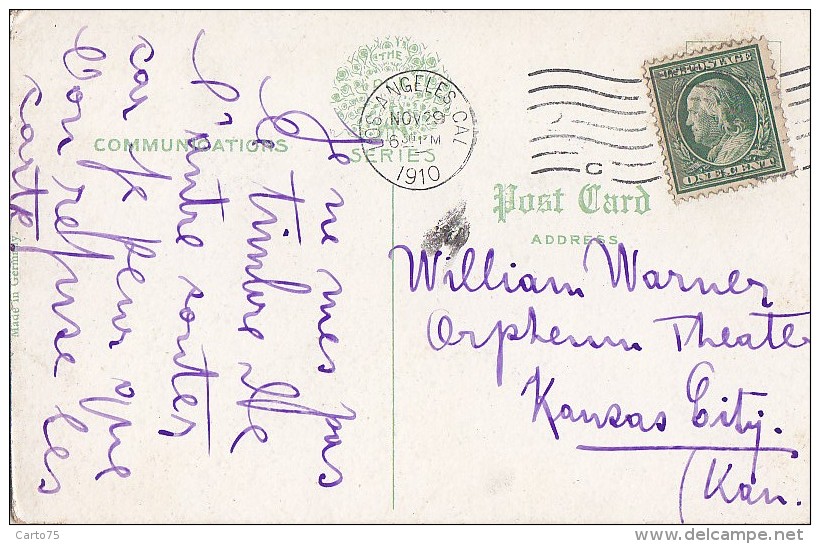 COMMUNICATIONS
THE
SERIES
LOS ANGELES, CAL
NOV 29
6 PM
1910
C
U.S. POSTAGE
ONE CENT
Post Card
ADDRESS
Made in Germany.
Je ne mes pas
le timbre
de
l'autre
car je peur que
l'on refuse les
carte
William Warner
Orpheum Theater
Kansas City.
(Kan.
Carto75
www.delcampe.net